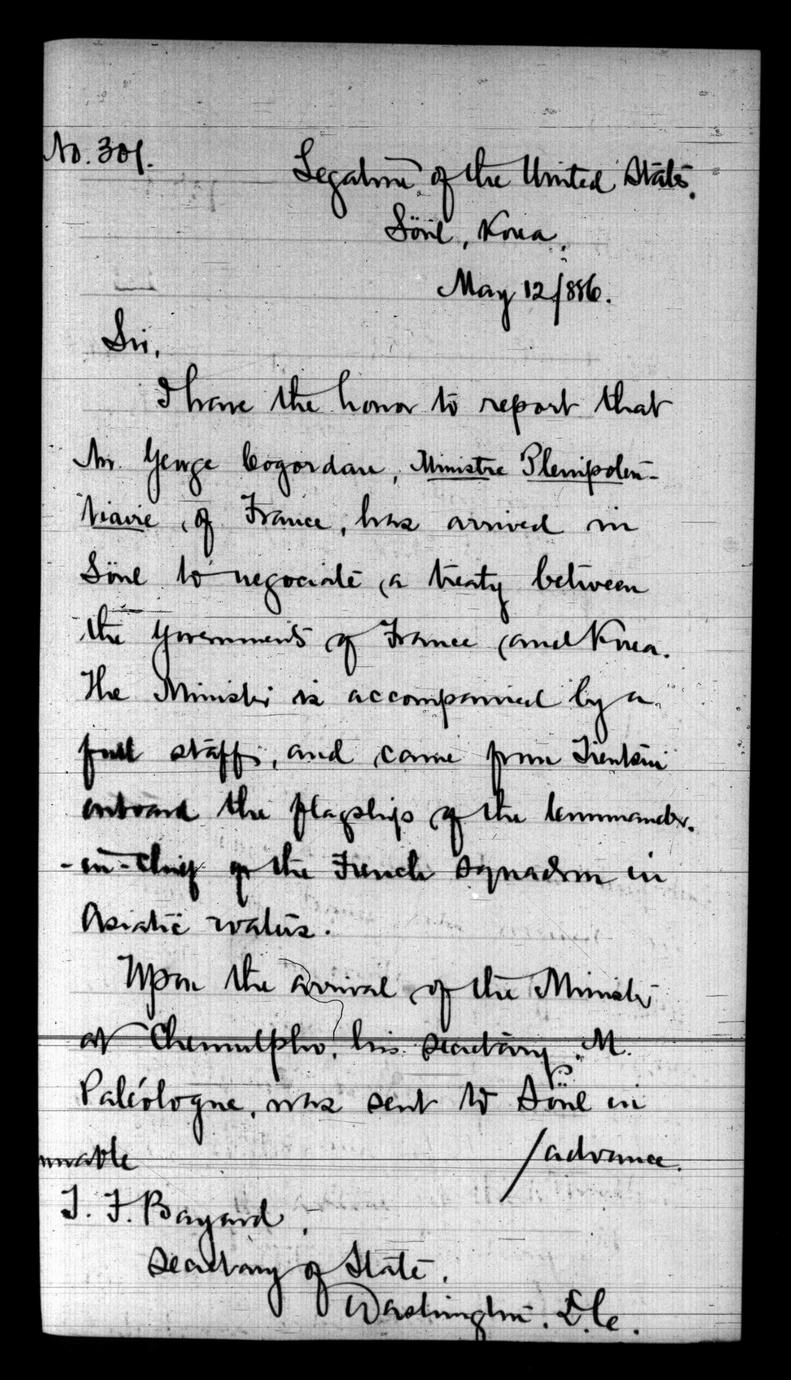 No. 301.
Legation of the United States.
Söul, Korea,
May 12/886.
Sir,
I have the honor to report that
Mr. George Cogordan, Ministre Plenipoten-
tiaire, of France, has arrived in
Söul to negociate a treaty between
the Governments of France and Korea.
The Minister is accompanied by a
full staff, and came from Tientsin
onboard the flagship of the Commander-
-in-Chief of the French squadron in
Asiatic waters.
Upon the arrival of the Minister
at Chemulpho, his secretary, M.
Paléologue, was sent to Söul in
/advance.
T. F. Bayard,
Secretary of State,
Washington. D.C.